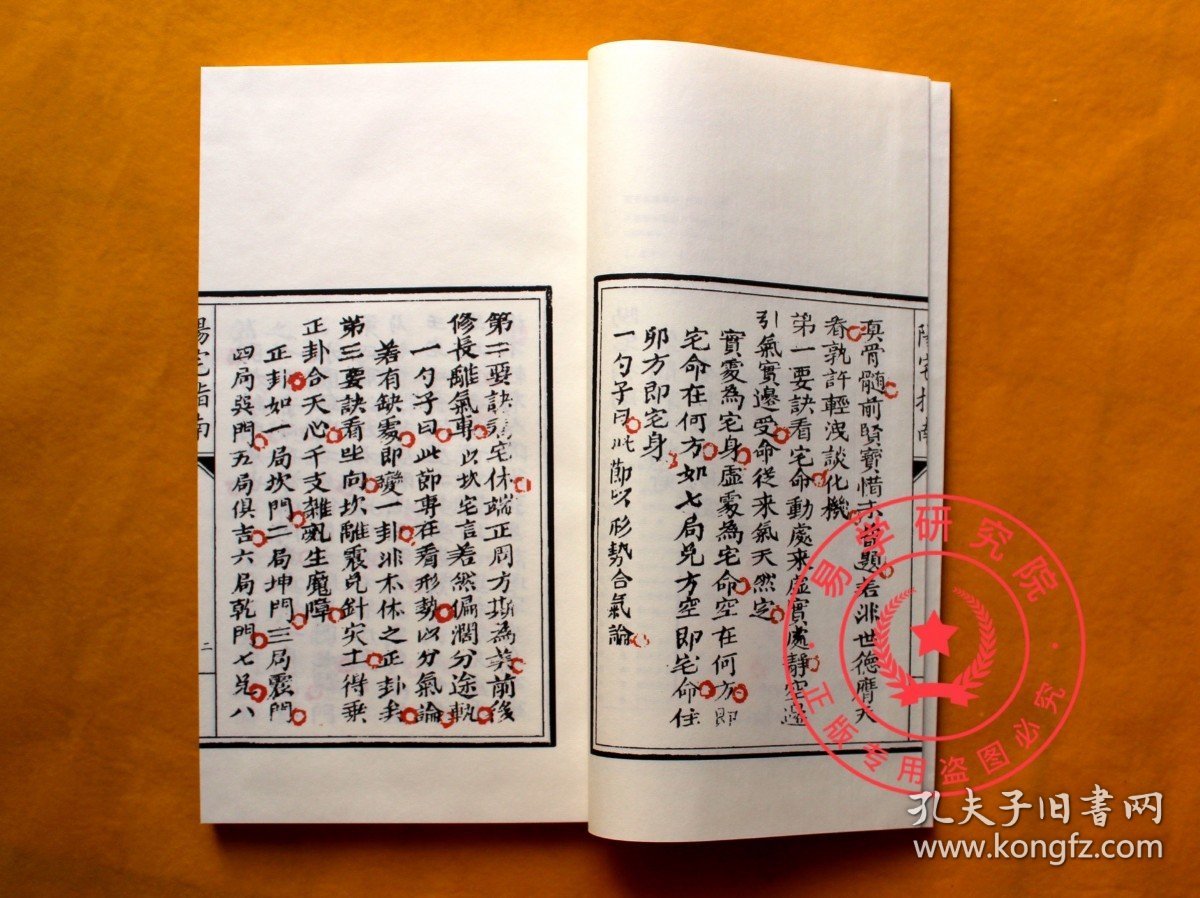 陽宅指南
真骨髓前賢寶惜未昔題若非世德膺天
眷孰許輕洩談化機
第一要訣看宅命動處来虛實處靜空邊
引氣實邊受命從来氣天然定
實處為宅身虛處為宅命空在何方即
宅命在何方如七局兌方空即宅命在
卯方即宅身
一勺子曰此節以形勢合氣論
第二要訣宅体端正周方斯為美前後
修長離氣專以坎宅言若然偏濶分途執
一勺子曰此節專在看形勢以分氣論
若有缺處即變一卦非本体之正卦矣
第三要訣看坐向坎離震兌針灾土得乘
正卦合天心干支雜亂生魔障
正卦如一局坎門二局坤門三局震門
四局巽門五局俱吉六局乾門七兌八
陽宅指南
二
易学研究院
正版专用盗图必究
孔夫子旧書网
www.kongfz.com